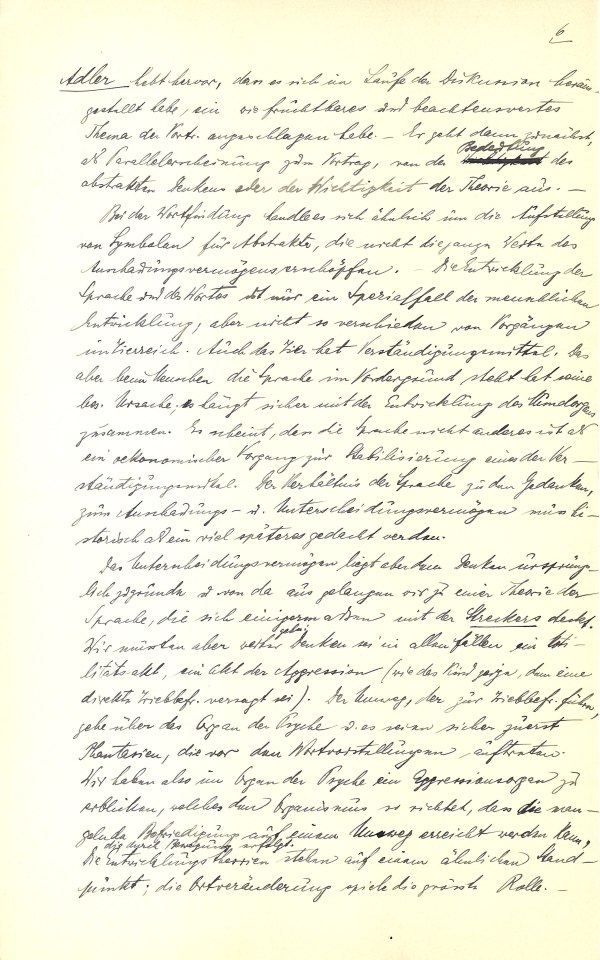 6
Adler hebt hervor, dass es sich im Laufe der Diskussion heraus-
gestellt habe, ein wie fruchtbares und beachtenswertes
Thema der Vortr. angeschlagen habe. — Er geht dann zunächst,
als Parallelerscheinung zum Vortrag, von der Bedeutung des
abstrakten Denkens oder der Wichtigkeit der Theorie aus. —
Bei der Wortfindung handle es sich ähnlich um die Aufstellung
von Symbolen für Abstrakta, die nicht die ganzen Werte des
Anschauungsvermögens erschöpfen. — Die Entwicklung der
Sprache und des Wortes ist nur ein Spezialfall der menschlichen
Entwicklung, aber nicht so verschieden von Vorgängen
im Tierreich. Auch das Tier hat Verständigungsmittel. Das
aber beim Menschen die Sprache im Vordergrund steht hat seine
bes. Ursache, es hängt sicher mit der Entwicklung des Mundorgans
zusammen. Es scheint, dass die Sprache nicht anderes ist als
ein oekonomischer Vorgang zur Stabilisierung eines der Ver-
ständigungsmittel. Das Verhältnis der Sprache zu den Gedanken,
zum Anschauungs- u. Unterscheidungsvermögen muss hi-
storisch als ein viel späteres gedacht werden.
Das Unterscheidungsvermögen liegt aber dem Denken ursprüng-
lich zugrunde u. von da aus gelangen wir zu einer Theorie der
Sprache, die sich einigermassen mit der Streckers deckt.
Wir müssten aber weiter gehn; Denken sei in allen Fällen ein
litätsakt, ein Akt der Aggression (wie das Kind zeige, dem eine
direkte Triebbefr. versagt sei). Der Umweg, der zur Triebbefr. führe,
gehe über das Organ der Psyche u. es seien sicher zuerst
Phantasien, die vor den Wortvorstellungen auftreten.
Wir haben also im Organ der Psyche ein Aggressionsorgan zu
erblicken, welches den Organismus so richtet, dass die man-
gelnde Befriedigung auf einem Umweg erreicht werden kann,
die durch Bewegung erfolgt.
Die Entwicklungstheorien stehen auf einem ähnlichen Stand-
punkt; die Ortveränderung spiele die grösste Rolle. —